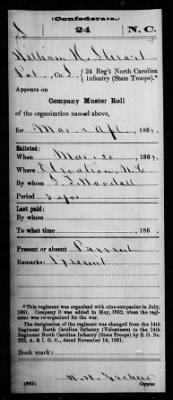 (Confederate.)
24 N.C.
William H.
24 Reg't North Carolina
Infantry (State Troops).*
Appears on
Company Muster Roll
of the organization named above,
for Mar & Apl, 186
Enlisted:
When Mar 20 186
Where N.C.
By whom
Period 3 yrs
Last paid:
By whom
To what time 186
Present or absent Present
Remarks: Present
*This regiment was organized with nine companies in July,
1861. Company D was added in May, 1862, when the regi-
ment was re-organized for the war.
The designation of the regiment was changed from the 14th
Regiment North Carolina Infantry (Volunteers) to the 24th
Regiment North Carolina Infantry (State Troops) by S. O. No.
222, A. & I. G. O., dated November 14, 1861.
Book mark:
Copyist.